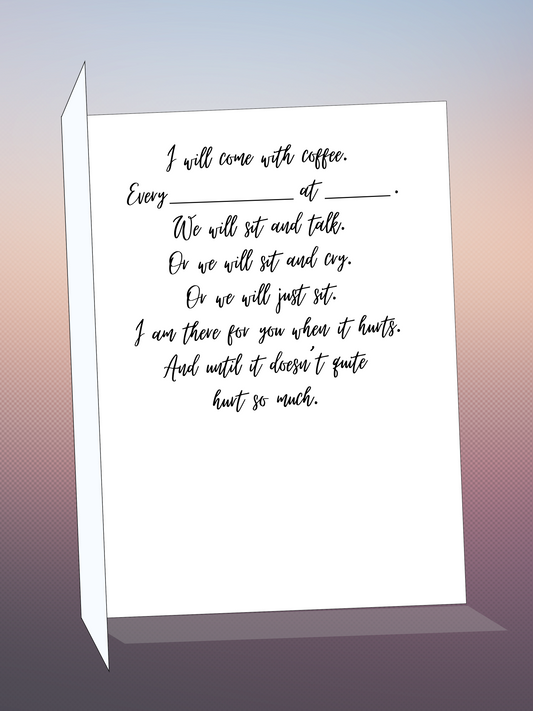 I will come with coffee.
Every ____________ at ______.
We will sit and talk.
Or we will sit and cry.
Or we will just sit.
I am there for you when it hurts.
And until it doesn't quite
hurt so much.